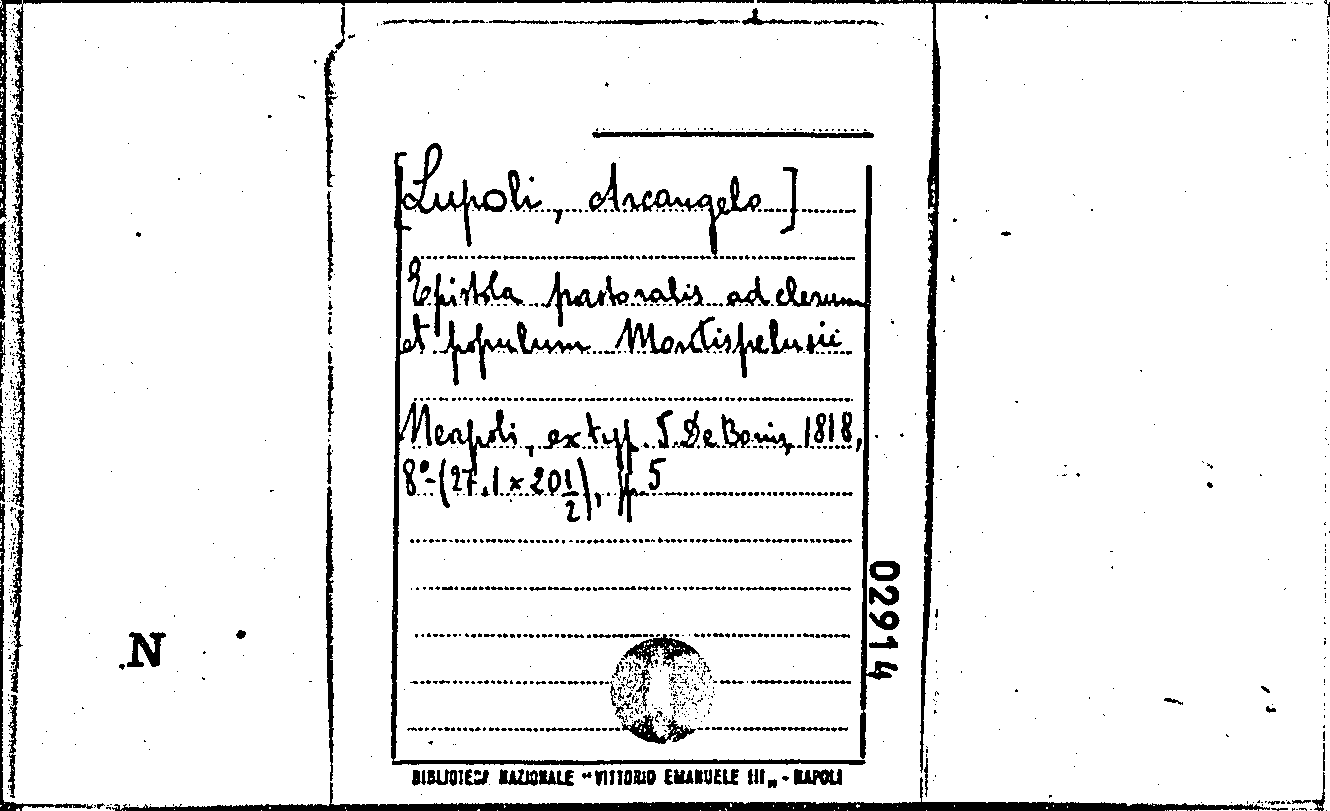 [Lupoli, Arcangelo]
Epistola pastoralis ad clerum
et populum Montispelusii
Neapoli, ex typ. S. De Bonis, 1818,
8°-(27.1 × 20 1/2), pp. 5
02914
N
BIBLIOTECA NAZIONALE "VITTORIO EMANUELE III„ - NAPOLI